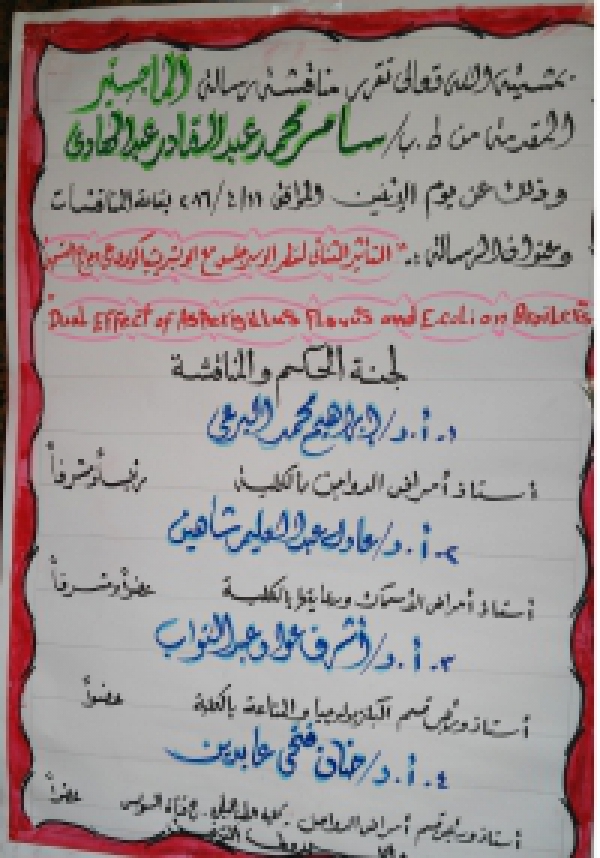 بمشيئة الله تعالى تقرر مناقشة رسالة الماجستير
المقدمة من ط.ب/ سامر محمد عبد القادر عبد الهادى
وذلك عن يوم الإثنين الموافق بقاعة المناقشات
وعنوان الرسالة :. " التأثير الثنائى لفطر الاسبرجلس مع
Dual Effect of Aspergillus Flavus and E.coli on Broilers
لجنة الحكم والمناقشة
١. أ.د/ إبراهيم محمد البرعى
أستاذ أمراض الدواجن بالكلية رئيساً ومشرفاً
٢. أ.د/ عادل عبد العليم شاهين
أستاذ أمراض الأسماك ورعايتها بالكلية عضواً ومشرفاً
٣. أ.د/ أشرف عواد عبد التواب
أستاذ ورئيس قسم البكتريولوجيا والمناعة بالكلية عضواً
٤. أ.د/ حنان فتحى عابدين
أستاذ ورئيس قسم أمراض الدواجن . كلية طب بيطرى . ج قناة السويس عضواً